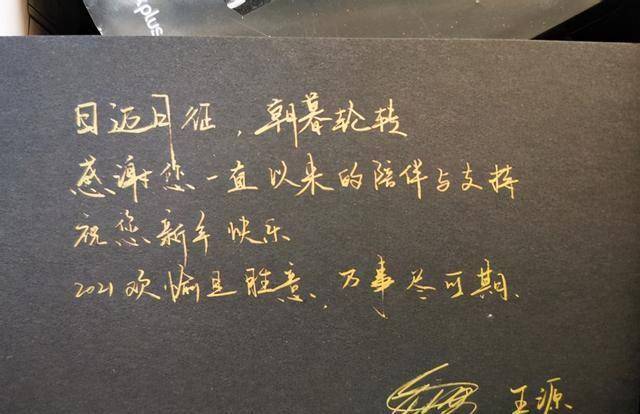 plus
日迈月征，朝暮轮转
感谢您一直以来的陪伴与支持
祝您新年快乐
2021欢愉且胜意，万事尽可期.
王源